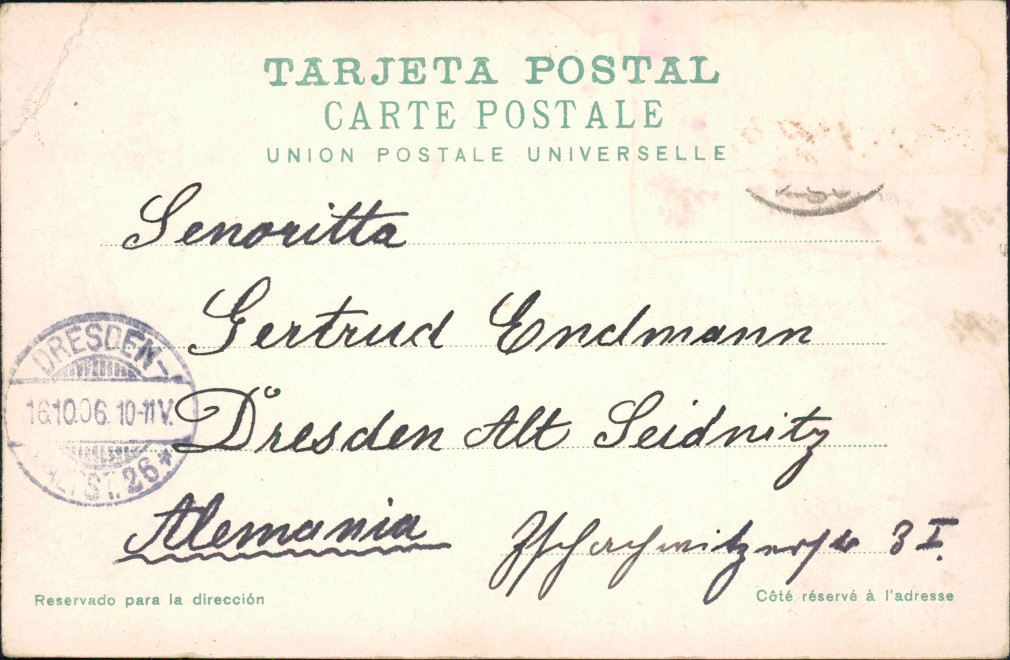 TARJETA POSTAL
CARTE POSTALE
UNION POSTALE UNIVERSELLE
Senoritta
Gertrud Endmann
Dresden Alt Seidnitz
Alemania
Zschachwitzerstr 3 I.
DRESDEN-
16.10.06. 10-11 V.
ALTST. 26 *
Reservado para la dirección
Côté réservé à l'adresse